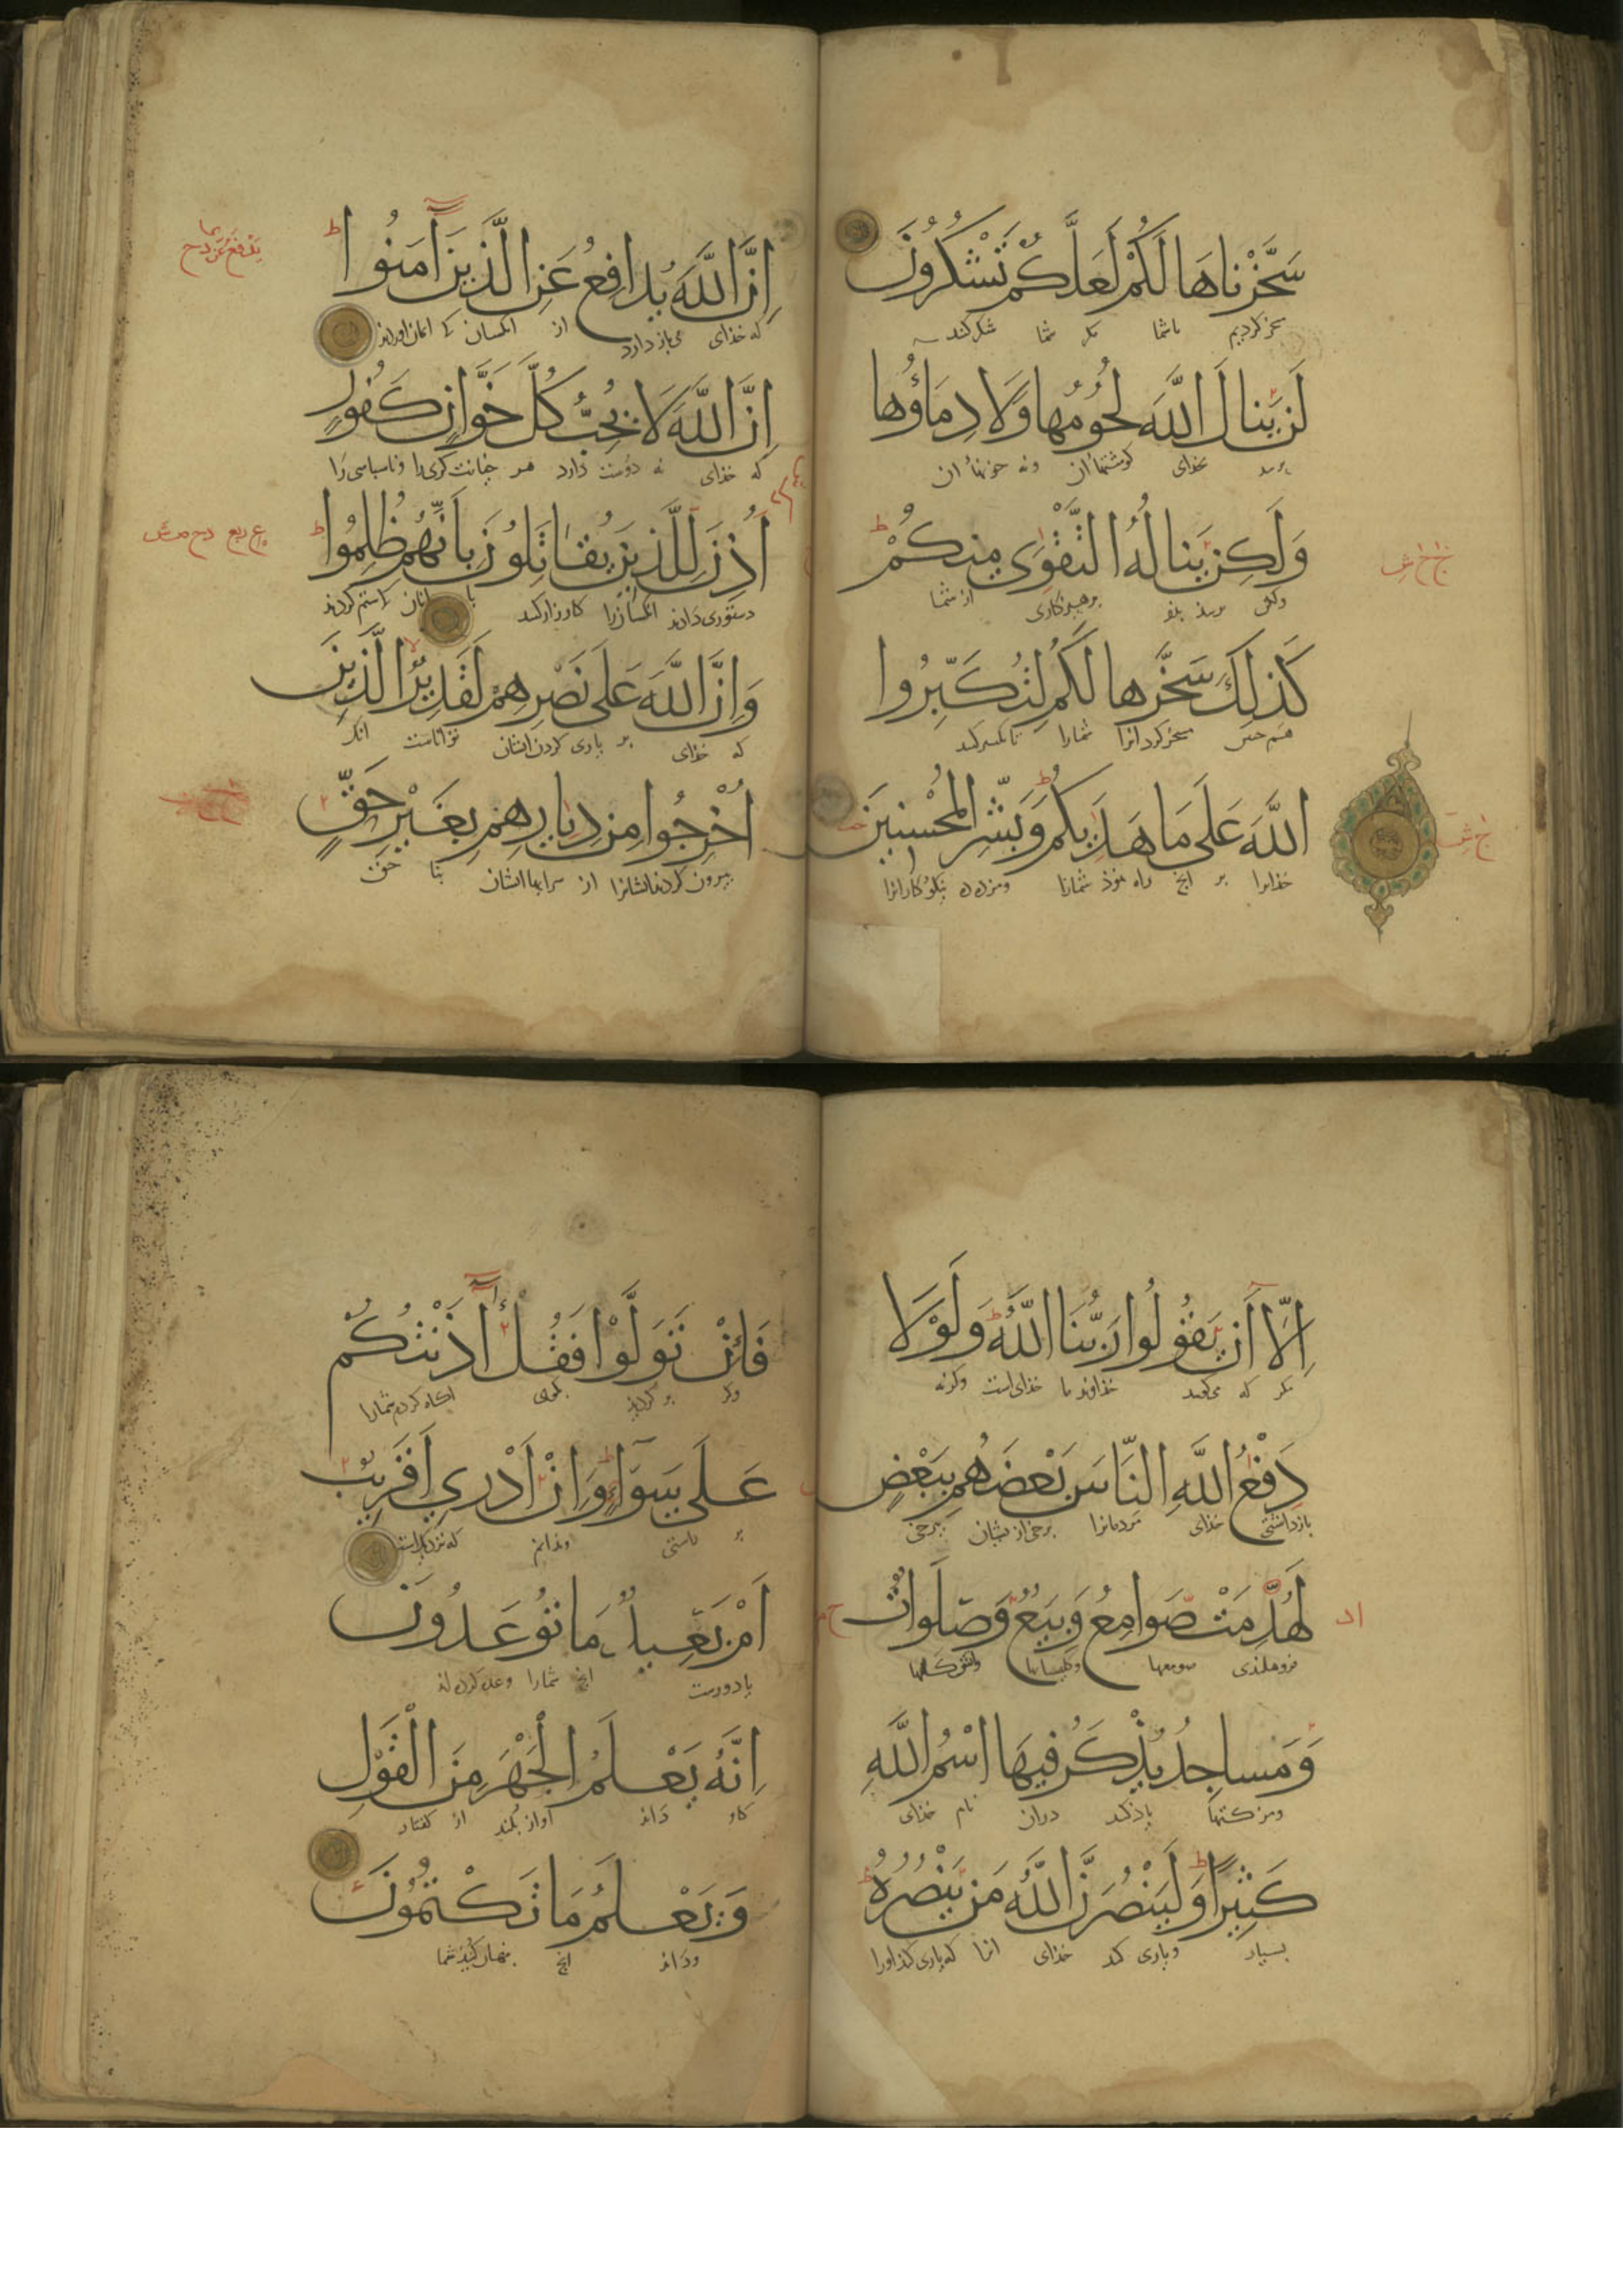 سَخَّرْنَاهَا لَكُمْ لَعَلَّكُمْ تَشْكُرُونَ
مسخر کردیم باشما مکر شما شکر کنند
لَنْ يَنَالَ اللَّهَ لُحُومُهَا وَلَا دِمَاؤُهَا
نرسد بخدای کوشتهاآن ونه خونهاآن
وَلَكِنْ يَنَالُهُ التَّقْوَى مِنْكُمْ
ولکن برسد بذو برهیزکاری از شما
كَذَلِكَ سَخَّرَهَا لَكُمْ لِتُكَبِّرُوا
مسخر کرد آنرا شمارا
اللَّهَ عَلَى مَا هَدَيكُمْ وَبَشِّرِ الْمُحْسِنِينَ
خدایرا بر آنچ راه نموذ شمارا ومزده ده نیکوکارانرا
إِنَّ اللَّهَ يُدَافِعُ عَنِ الَّذِينَ آمَنُوا
که خذای می‌باز دارد از آنکسان که ایمان اوردند
إِنَّ اللَّهَ لَا يُحِبُّ كُلَّ خَوَّانٍ كَفُورٍ
که خذای نه دوست دارد هر خیانت کری را وناسباسی را
أُذِنَ لِلَّذِينَ يُقَاتَلُونَ بِأَنَّهُمْ ظُلِمُوا
دستوری دادند آنکسانرا کارزار کنند با انان که ستم کردند
وَإِنَّ اللَّهَ عَلَى نَصْرِهِمْ لَقَدِيرٌ الَّذِينَ
که خذای بر یاری کردن ایشان تواناست آنک
أُخْرِجُوا مِنْ دِيَارِهِمْ بِغَيْرِ حَقٍّ
بیرون کردند ایشانرا از سرایها ایشان بنا حق
إِلَّا أَنْ يَقُولُوا رَبُّنَا اللَّهُ وَلَوْلَا
مکر که می‌کویند خذاوند ما خذای است وکرنه
دَفْعُ اللَّهِ النَّاسَ بَعْضَهُمْ بِبَعْضٍ
بازداشتی خذای مردمانرا برخی از یشان ببرخی
لَهُدِّمَتْ صَوَامِعُ وَبِيَعٌ وَصَلَوَاتٌ
صومعها وکلیساها
وَمَسَاجِدُ يُذْكَرُ فِيهَا اسْمُ اللَّهِ
ومزکتها یاذ کند دران نام خذای
كَثِيرًا وَلَيَنْصُرَنَّ اللَّهُ مَنْ يَنْصُرُهُ
بسیار ویاری کند خذای انرا که یاری کند اورا
فَإِنْ تَوَلَّوْا فَقُلْ آذَنْتُكُمْ
وکر بر کردند بکوی آکاه کردم شمارا
عَلَى سَوَاءٍ وَإِنْ أَدْرِي أَقَرِيبٌ
بر راستی وندانم که نزدیک است
أَمْ بَعِيدٌ مَا تُوعَدُونَ
یا دورست آنچ شمارا وعده کرده‌اند
إِنَّهُ يَعْلَمُ الْجَهْرَ مِنَ الْقَوْلِ
کاو داند آواز بلند از کفتار
وَيَعْلَمُ مَا تَكْتُمُونَ
وداند آنچ بنهان کنید شما